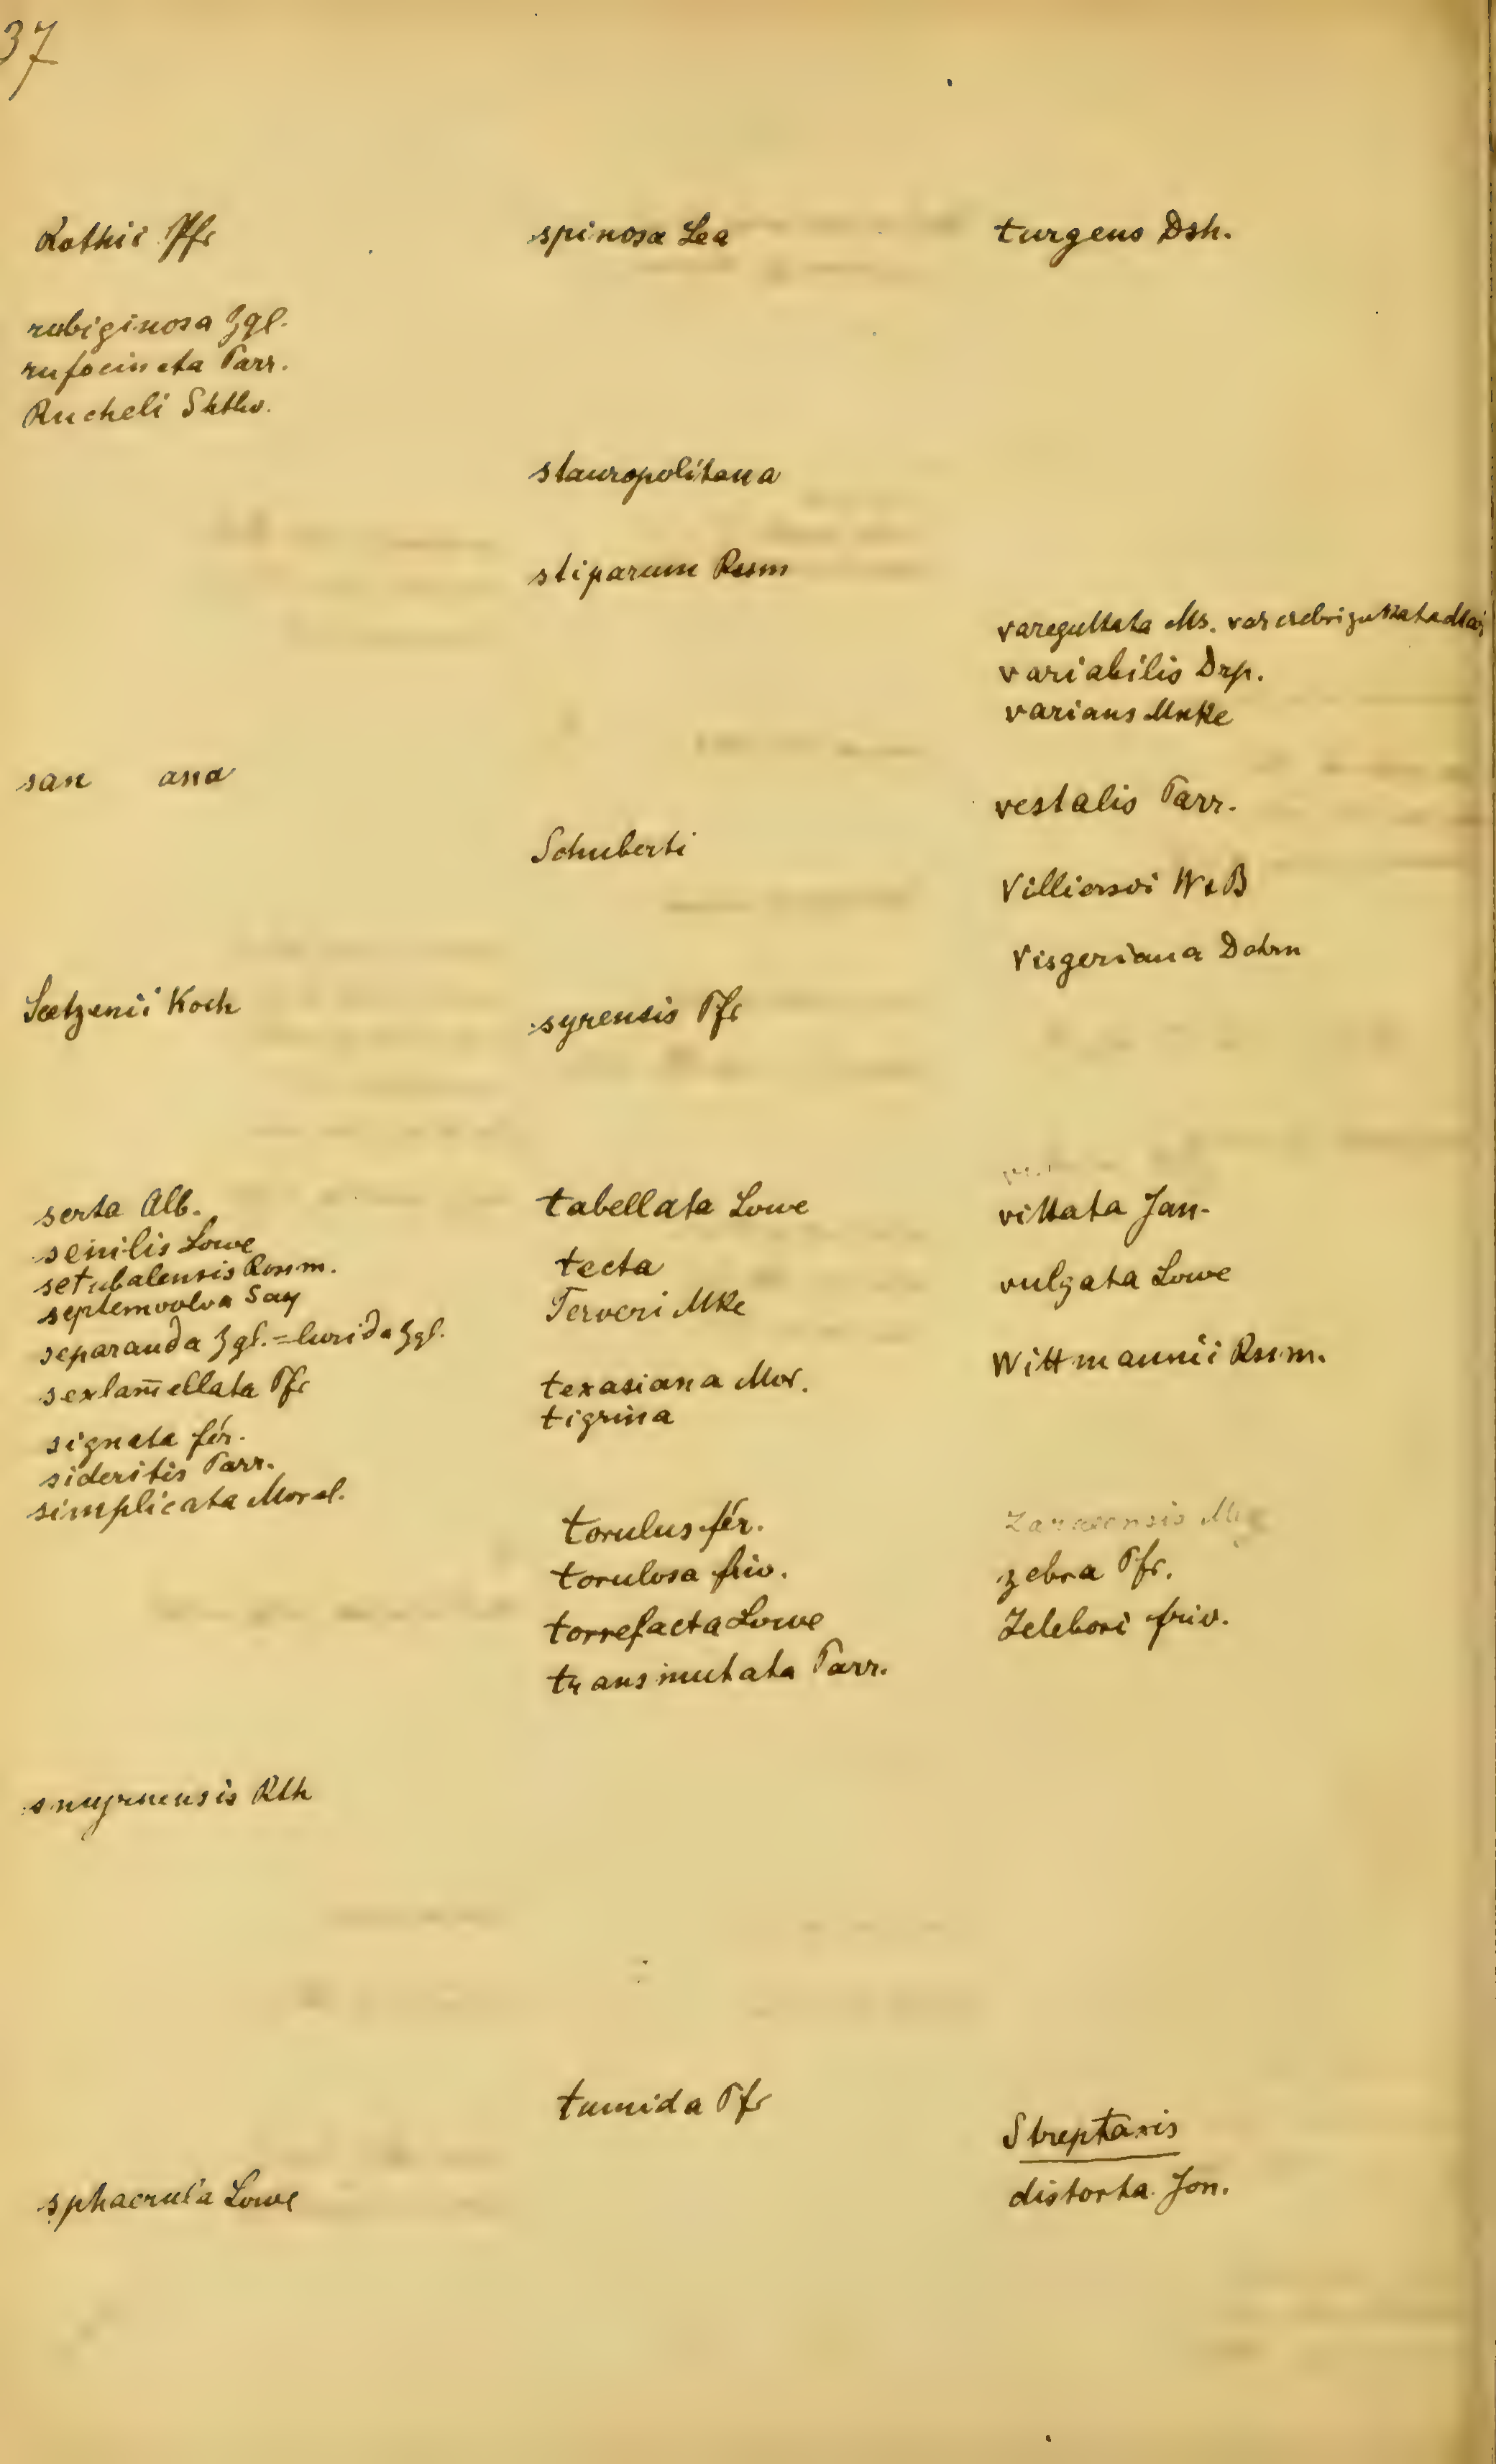 37
Rothii Pfr
rubiginosa Zgl.
rufocincta Parr.
Rucheli Shttlw.
san ana
Seetzenii Koch
serta Alb.
senilis Lowe
setubalensis Rossm.
septemvolva Say
separanda Zgl. = lurida Zgl.
sexlam̄ellata Pfr
signata fér.
sideritis Parr.
simplicata Morel.
smyrnensis Rth
sphaerula Lowe
spinosa Lea
stauropolitana
stiparum Rssm
Schuberti
syrensis Pfr
tabellata Lowe
tecta
Terveri Mke
texasiana Mor.
tigrina
torulus fér.
torulosa friv.
torrefacta Lowe
transmutata Parr.
tumida Pfr
turgens Dsh.
vareguttata Ms. var
variabilis Drp.
varians Mnke
vestalis Parr.
Villiersii W & B
Visgeriana Dohrn
vittata Jan.
vulgata Lowe
Wittmannii Rssm.
zebra Pfr.
Zelebori friv.
Streptaxis
distorta Jon.